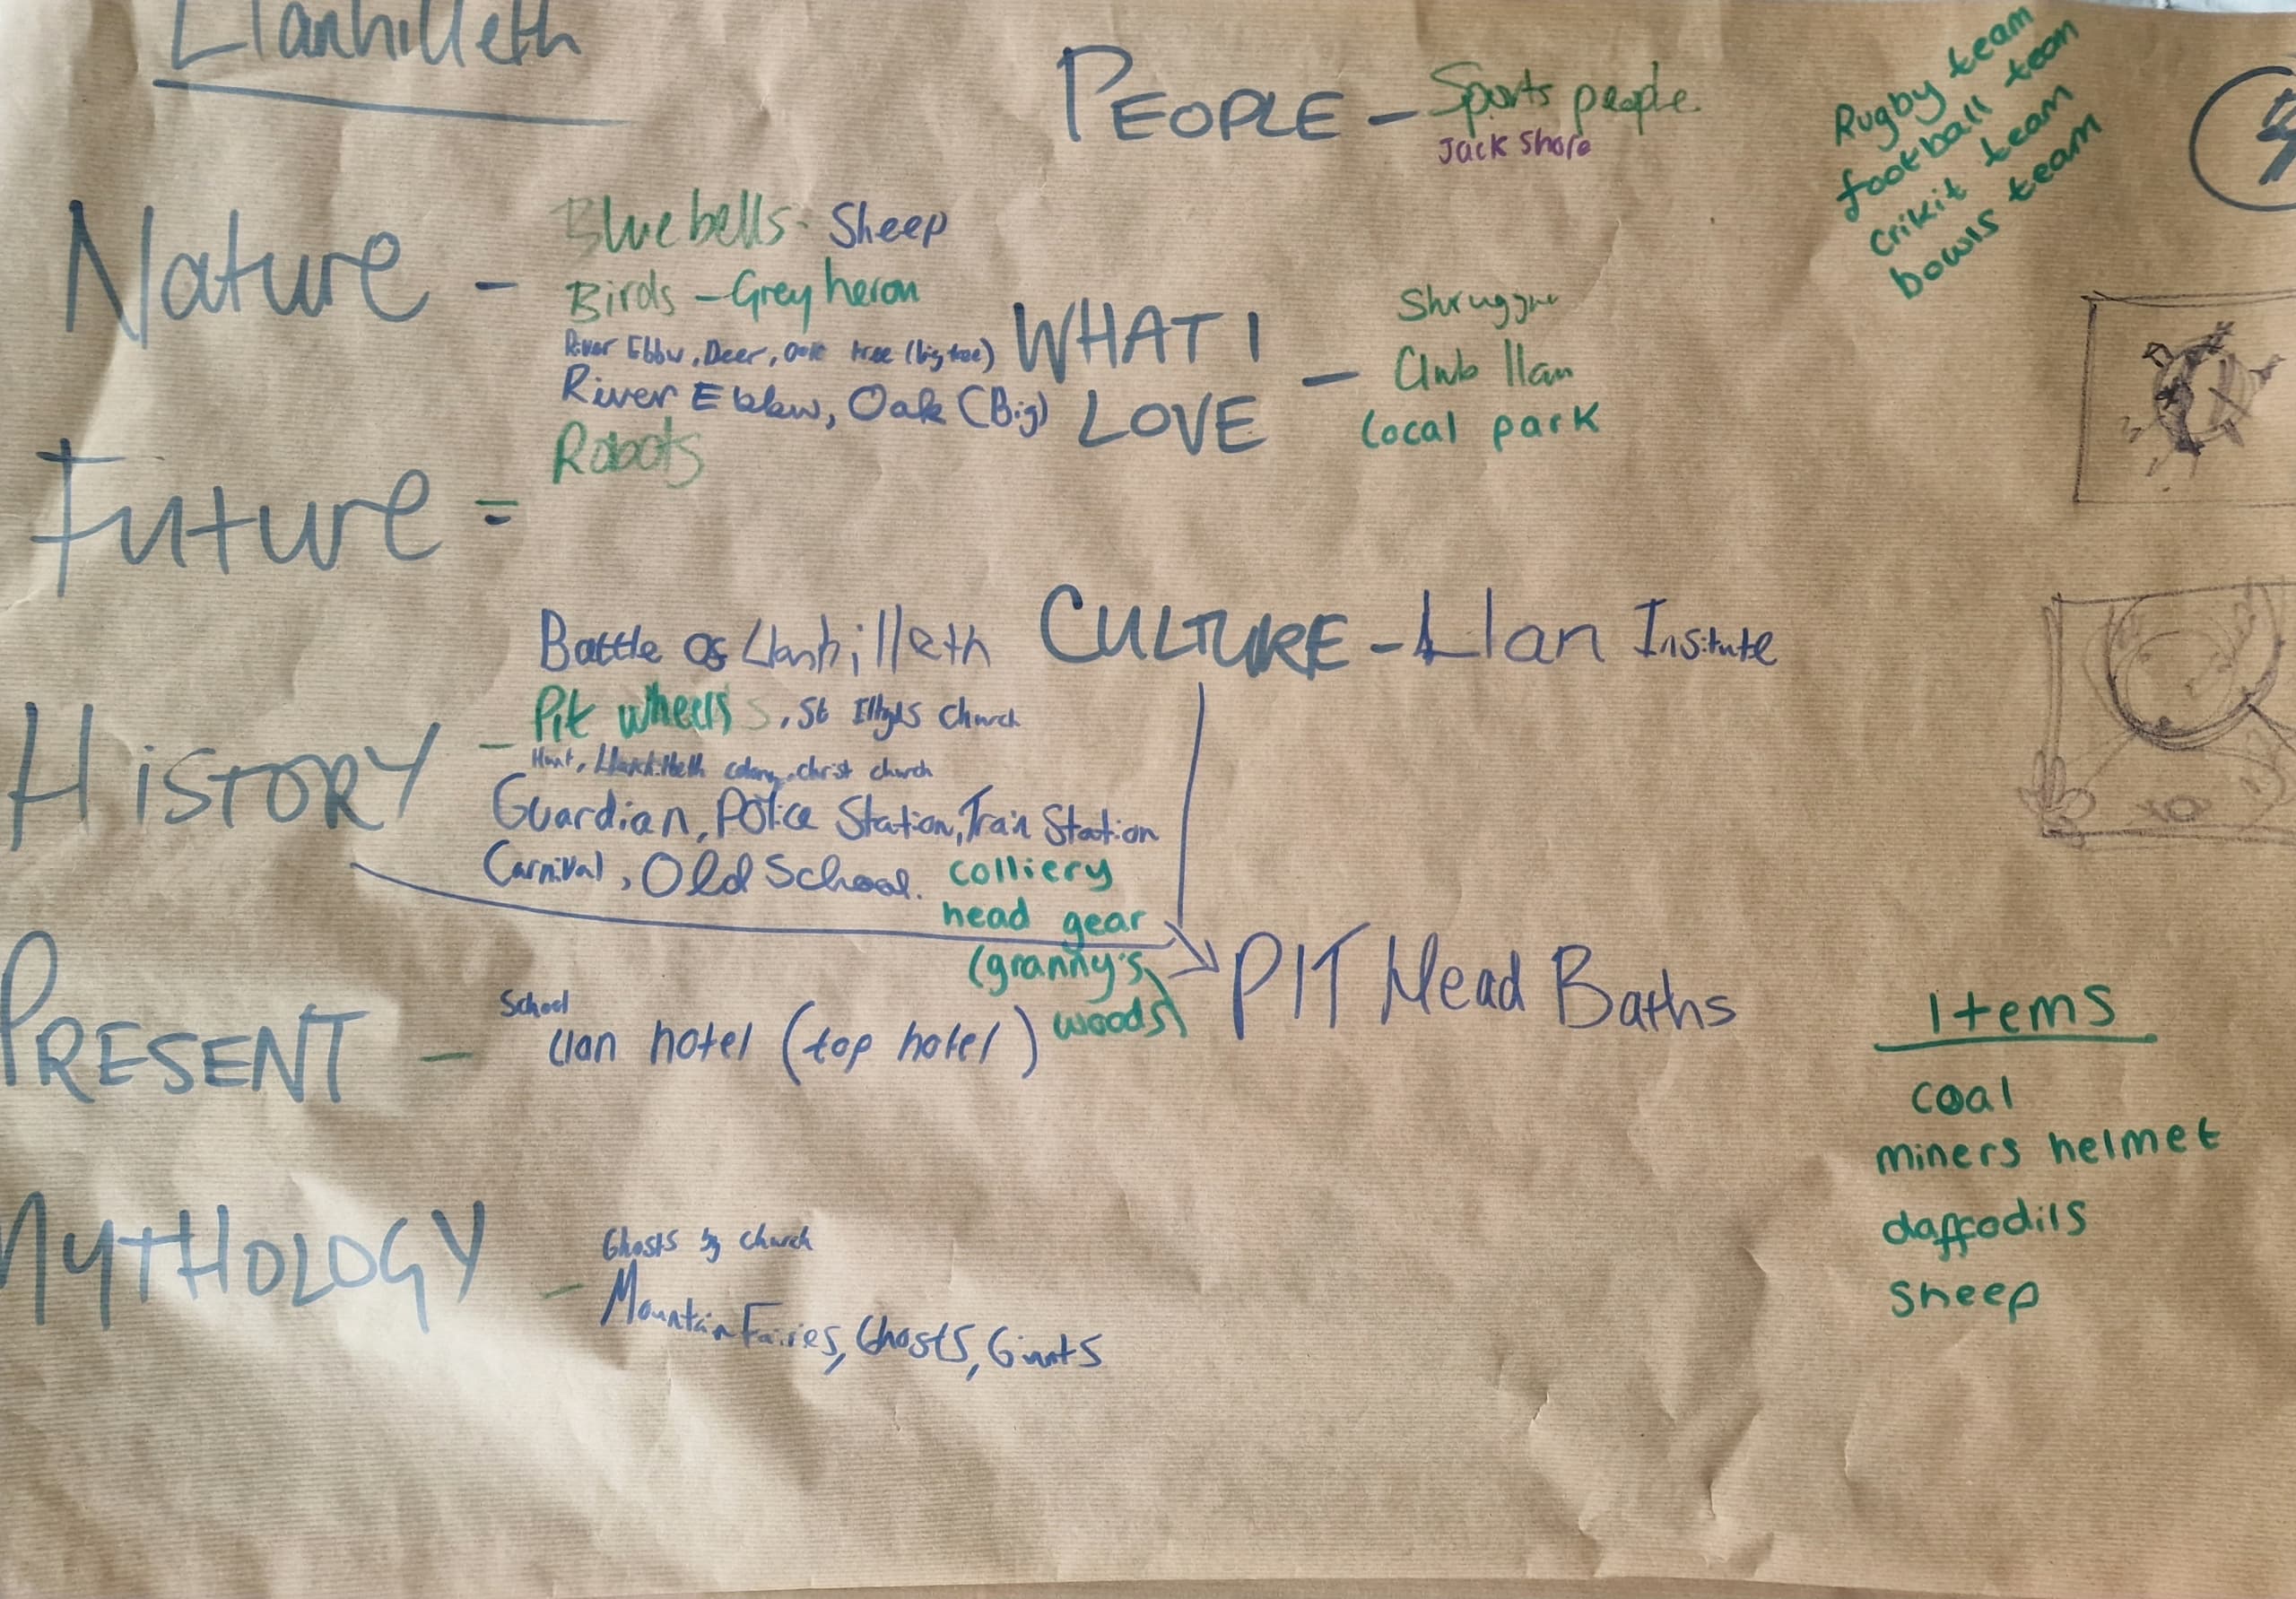 Llanhilleth
PEOPLE - Sports people
Jack Shore
Rugby team
football team
crikit team
bowls team
Nature - Bluebells - Sheep
Birds - Grey heron
River Ebbw, Deer, Oak tree (big tree)
River Ebbw, Oak (Big)
WHAT I
LOVE -
Club llan
Local park
Future = Robots
CULTURE - Llan Insitute
HISTORY -
Battle of Llanhilleth
Pit wheels, St Illtyds Church
Hunt, Llanhilleth colony, Christ church
Guardian, Police Station, Train Station
Carnival, Old School.
colliery
head gear
(granny's
woods)
PIT Head Baths
PRESENT - School
Llan hotel (top hotel)
MYTHOLOGY -
Ghosts by church
Mountain Fairies, Ghosts, Giants
Items
coal
miners helmet
daffodils
sheep